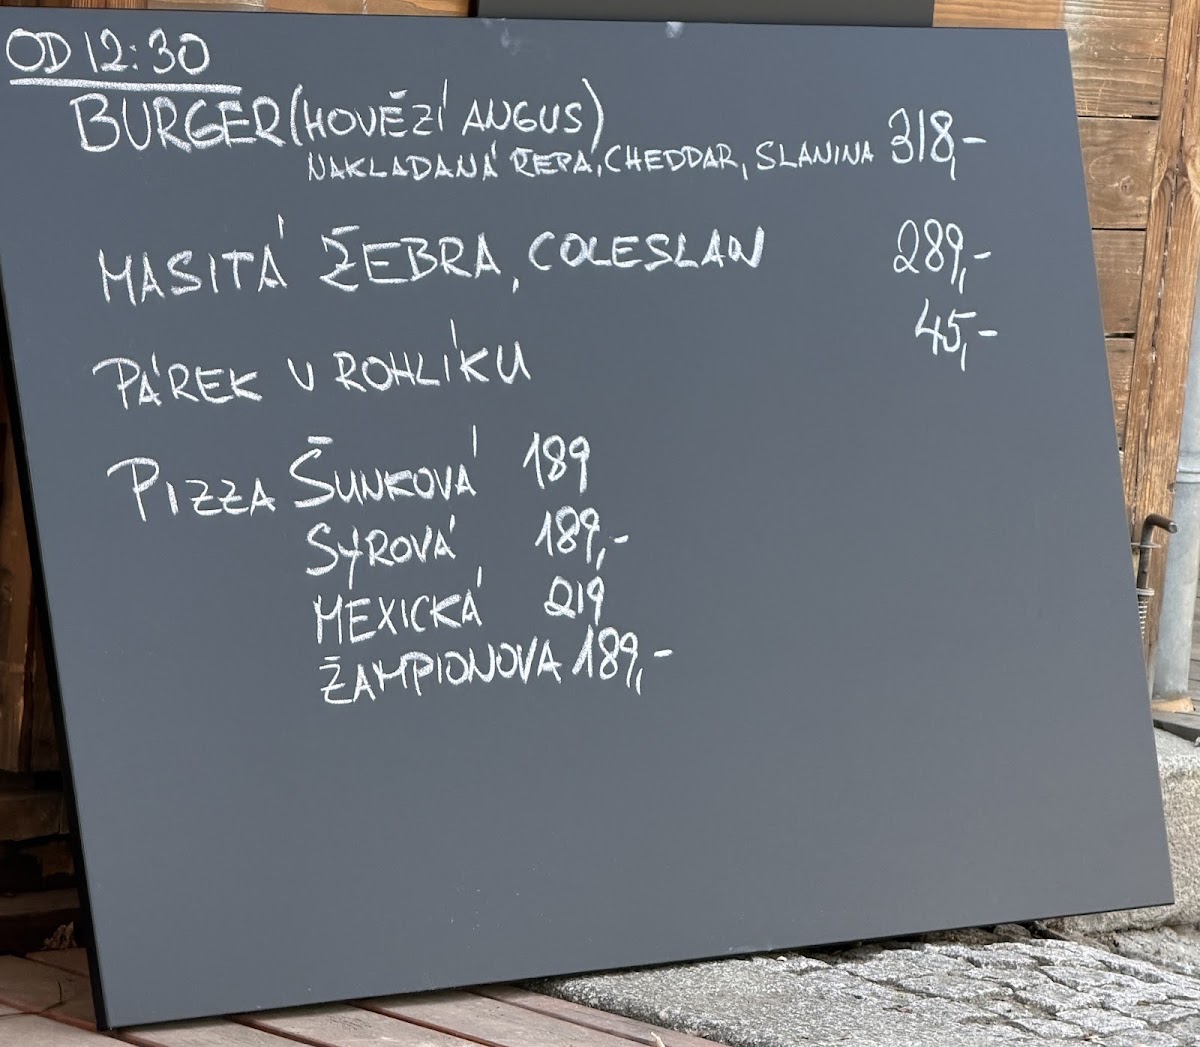 OD 12:30
BURGER (HOVĚZÍ ANGUS)
NAKLADANÁ ŘEPA, CHEDDAR, SLANINA 318,-
MASITÁ ŽEBRA, COLESLAW 289,-
PÁREK V ROHLÍKU 45,-
PIZZA ŠUNKOVÁ 189
SÝROVÁ 189,-
MEXICKÁ 219
ŽAMPIONOVA 189,-